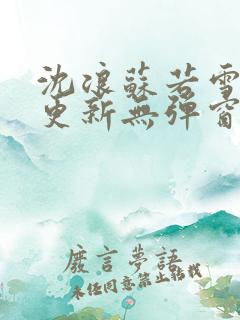 沈浪蘇若雪
更新無彈窗
廢言夢語
未任同意禁止轉載